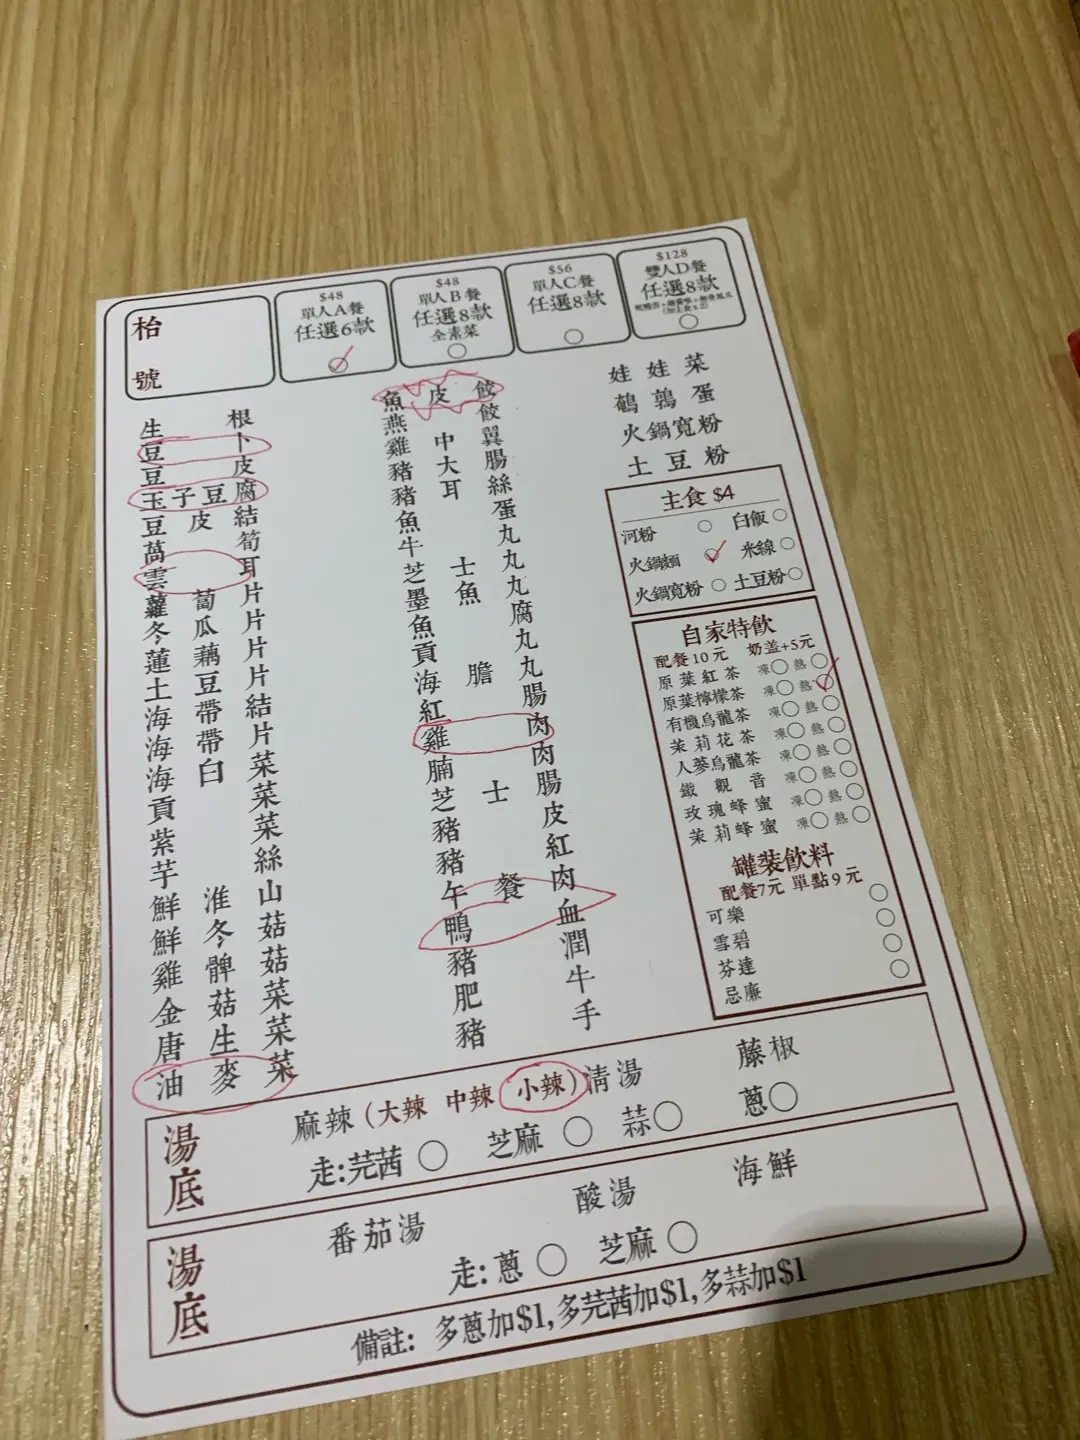 枱號
$48
單人A餐
任選6款
$48
單人B餐
任選8款
全素菜
$56
單人C餐
任選8款
$128
雙人D餐
任選8款
生根
豆卜
豆皮
玉子豆腐
豆皮結
萵筍
雲耳
蘿蔔片
冬瓜片
蓮藕片
土豆片
海帶結
海帶片
海白菜
貢菜
紫菜
芋絲
鮮淮山
鮮冬菇
雞髀菇
金菇菜
唐生菜
油麥菜
魚皮餃
燕餃
雞中翼
豬大腸
豬耳絲
魚蛋
牛丸
芝士丸
墨魚丸
魚腐
貢丸
海膽丸
紅腸
雞肉
腩肉
芝士腸
豬皮
豬紅
午餐肉
鴨血
豬潤
肥牛
豬手
娃娃菜
鵪鶉蛋
火鍋寬粉
土豆粉
主食 $4
河粉 白飯
火鍋麵 米線
火鍋寬粉 土豆粉
自家特飲
配餐10元 奶盖+5元
原葉紅茶 凍 熱
原葉檸檬茶 凍 熱
有機烏龍茶 凍 熱
茉莉花茶 凍 熱
人參烏龍茶 凍 熱
鐵觀音 凍 熱
玫瑰蜂蜜 凍 熱
茉莉蜂蜜 凍 熱
罐裝飲料
配餐7元 單點9元
可樂
雪碧
芬達
忌廉
湯底
麻辣 (大辣 中辣 小辣) 清湯 藤椒
走:芫茜 芝麻 蒜 蔥
湯底
番茄湯 酸湯 海鮮
走:蔥 芝麻
備註: 多蔥加$1,多芫茜加$1,多蒜加$1